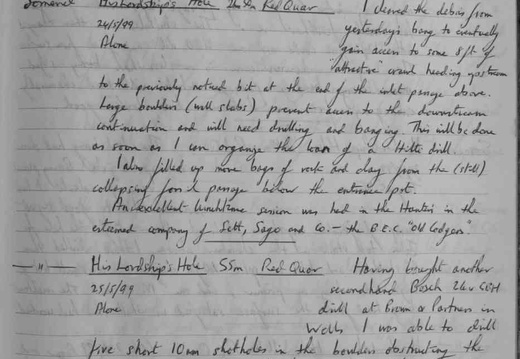 Somerset His Lordship's Hole 2h 4m Red Quar I cleared the debris from
24/5/99 yesterday's bang to eventually
Alone gain access to some 8ft of
"attractive" crawl heading upstream
to the previously noticed bit at the end of the inlet passage above.
Large boulders (wall slabs) prevent access to the downstream
continuation and will need drilling and banging. This will be done
as soon as I can organize the loan of a Hilti drill.
I also filled up more bags of rock and clay from the (still)
collapsing fossil passage below the entrance pot.
An excellent lunchtime session was had in the Hunters in the
esteemed company of Sett, Sago and Co. - the B.E.C. "Old Codgers"
" His Lordship's Hole 55m Red Quar Having bought another
25/5/99 secondhand Bosch 24v
Alone drill at Brown & Partners in
Wells I was able to drill
five short 10mm shotholes in the boulders obstructing the